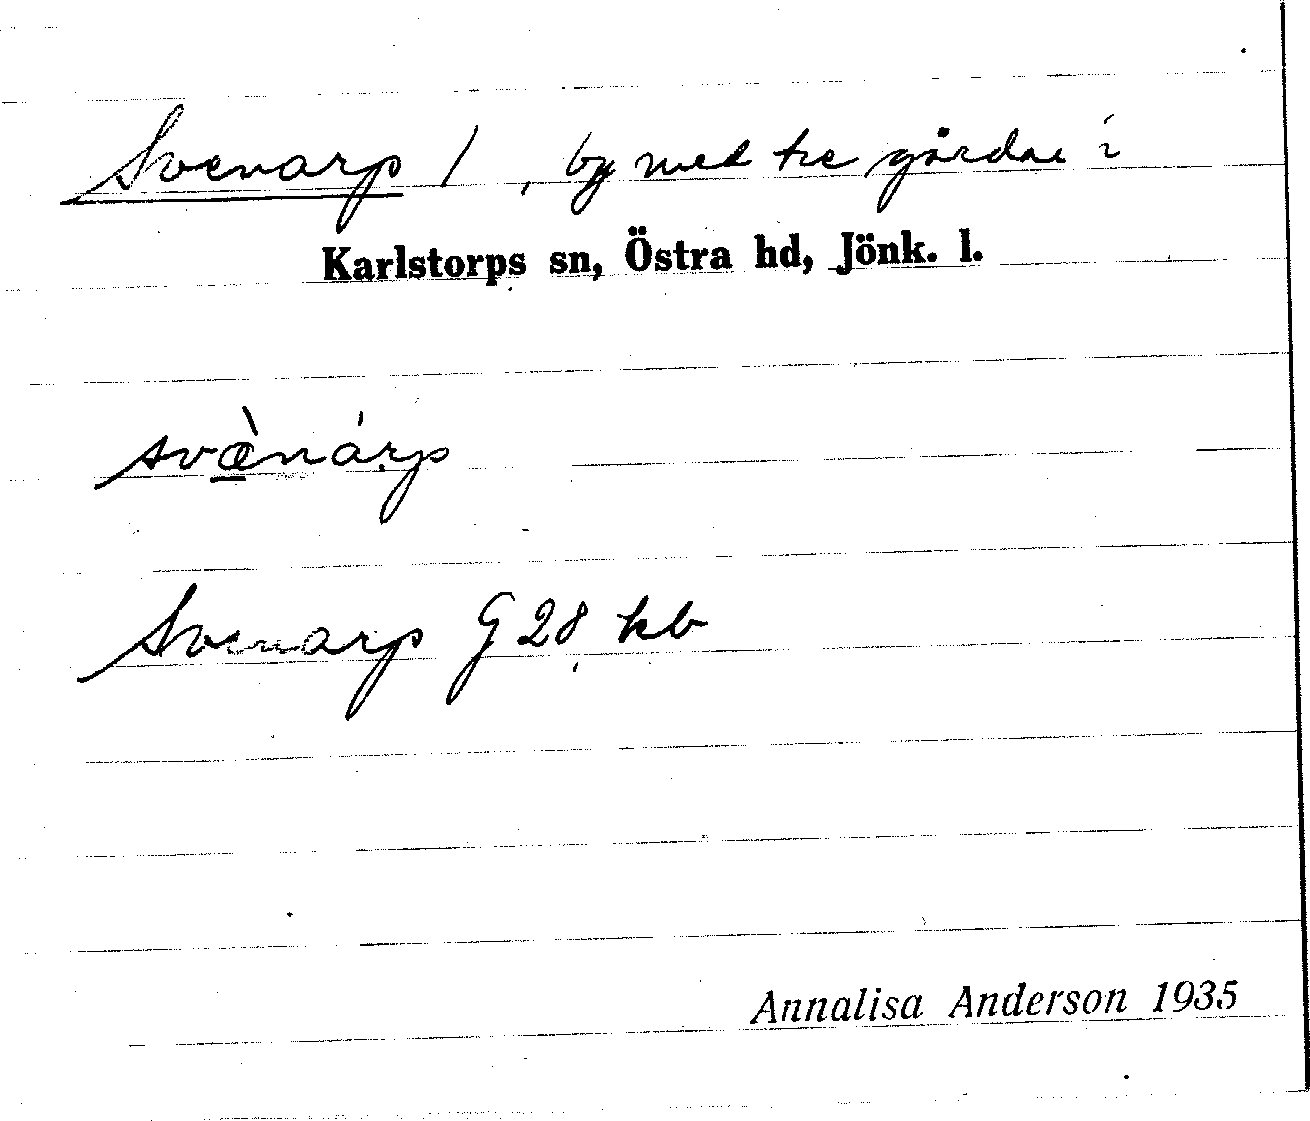 Svenarp 1, by med tre gårdar i
Karlstorps sn, Östra hd, Jönk. l.
svæ̀nárp
Svenarp G 28 kb
Annalisa Anderson 1935